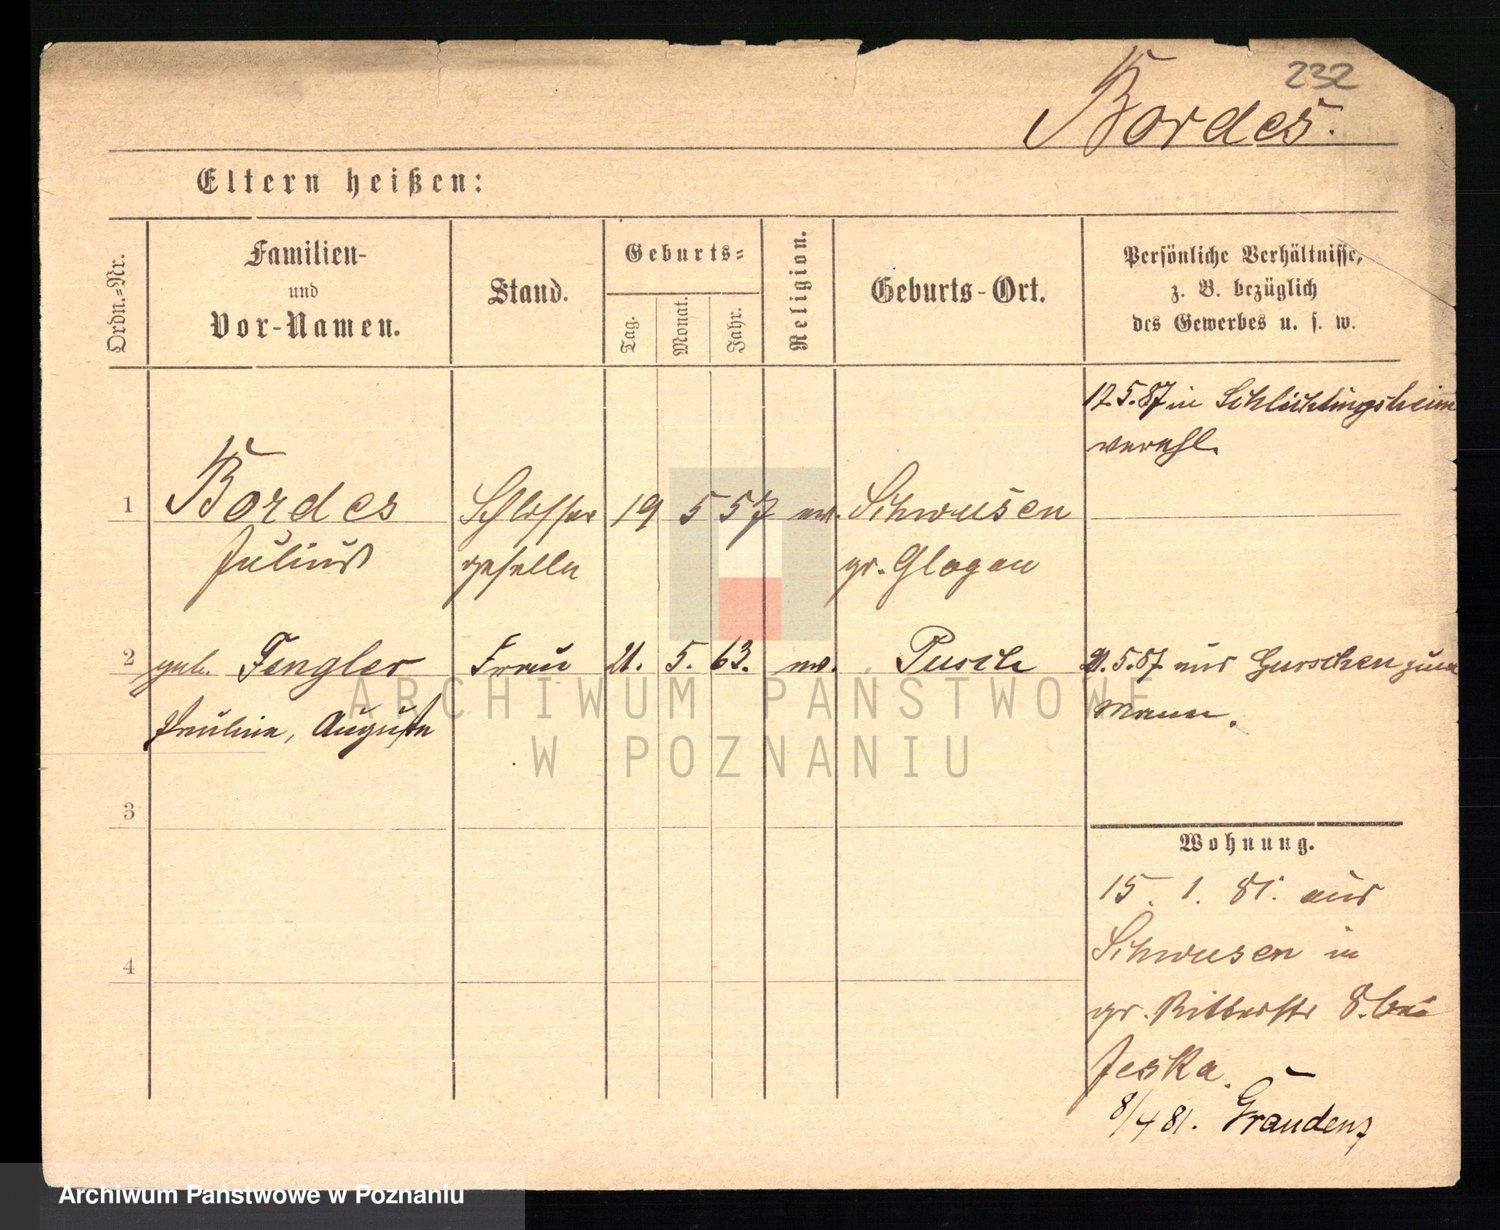 232
Bordes.
Eltern heißen:
Ordn.-Nr.
Familien-
und
Vor-Namen.
Stand.
Geburts-
Tag.
Monat.
Jahr.
Religion.
Geburts-Ort.
Persönliche Verhältnisse,
z. B. bezüglich
des Gewerbes u. s. w.
12.5.87 in Schlichtingsheim
verehl.
1 Bordes Schlosser 19 5 57 ev. Schwusen
Julius geselle gr. Glogau
2 geb. Fengler Frau 21. 5. 63. ev. Pusch 21.5.87 aus Gurschen zum
Pauline, Auguste Mann.
3
Wohnung.
15. 1. 81. aus
Schwusen in
4
gr. Ritterstr 8. bei
Jeska.
8/4 81. Graudenz
ARCHIWUM PAŃSTWOWE
W POZNANIU
Archiwum Państwowe w Poznaniu